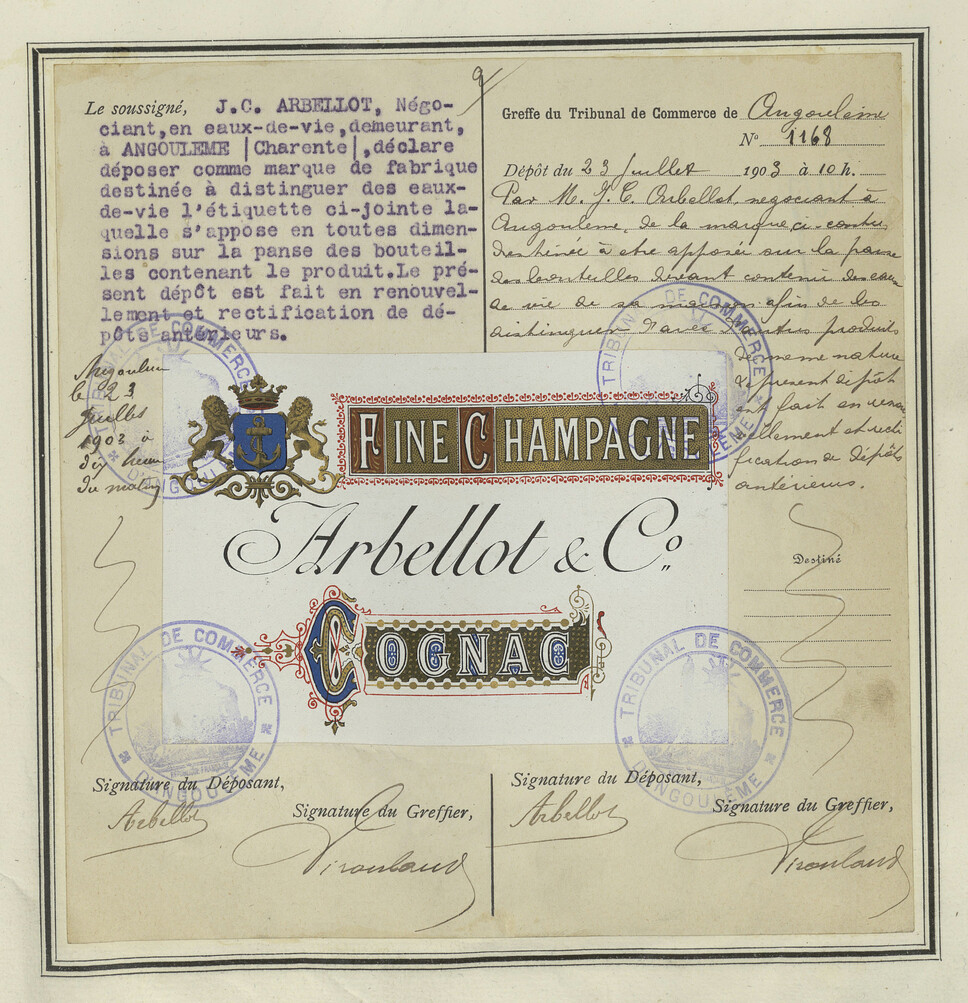 9
Le soussigné, J.C. ARBELLOT, Négo-
ciant,en eaux-de-vie,demeurant,
à ANGOULEME |Charente|,déclare
déposer comme marque de fabrique
destinée à distinguer des eaux-
de-vie l'étiquette ci-jointe la-
quelle s'appose en toutes dimen-
sions sur la panse des bouteil-
les contenant le produit.Le pré-
sent dépôt est fait en renouvel-
lement et rectification de dé-
pôts antérieurs.
Angoulême
le 23
Juillet
1903 à
dix heures
du matin
Greffe du Tribunal de Commerce de Angoulême
N° 1168
Dépôt du 23 Juillet 1903 à 10 h.
Par M. J. C. Arbellot, négociant à
Angoulême, de la marque ci-contre
destinée à être apposée sur la panse
des bouteilles devant contenir des eaux
de vie de sa maison afin de les
distinguer d'avec d'autres produits
de même nature
Le présent dépôt
est fait en renou
vellement et recti
fication de dépôts
antérieurs.
FINE CHAMPAGNE
Arbellot & Co.
COGNAC
Destiné
TRIBUNAL DE COMMERCE
D'ANGOULÊME
TRIBUNAL DE COMMERCE
D'ANGOULÊME
TRIBUNAL DE COMMERCE
D'ANGOULÊME
TRIBUNAL DE COMMERCE
D'ANGOULÊME
Signature du Déposant,
Arbellot
Signature du Greffier,
Signature du Déposant,
Arbellot
Signature du Greffier,